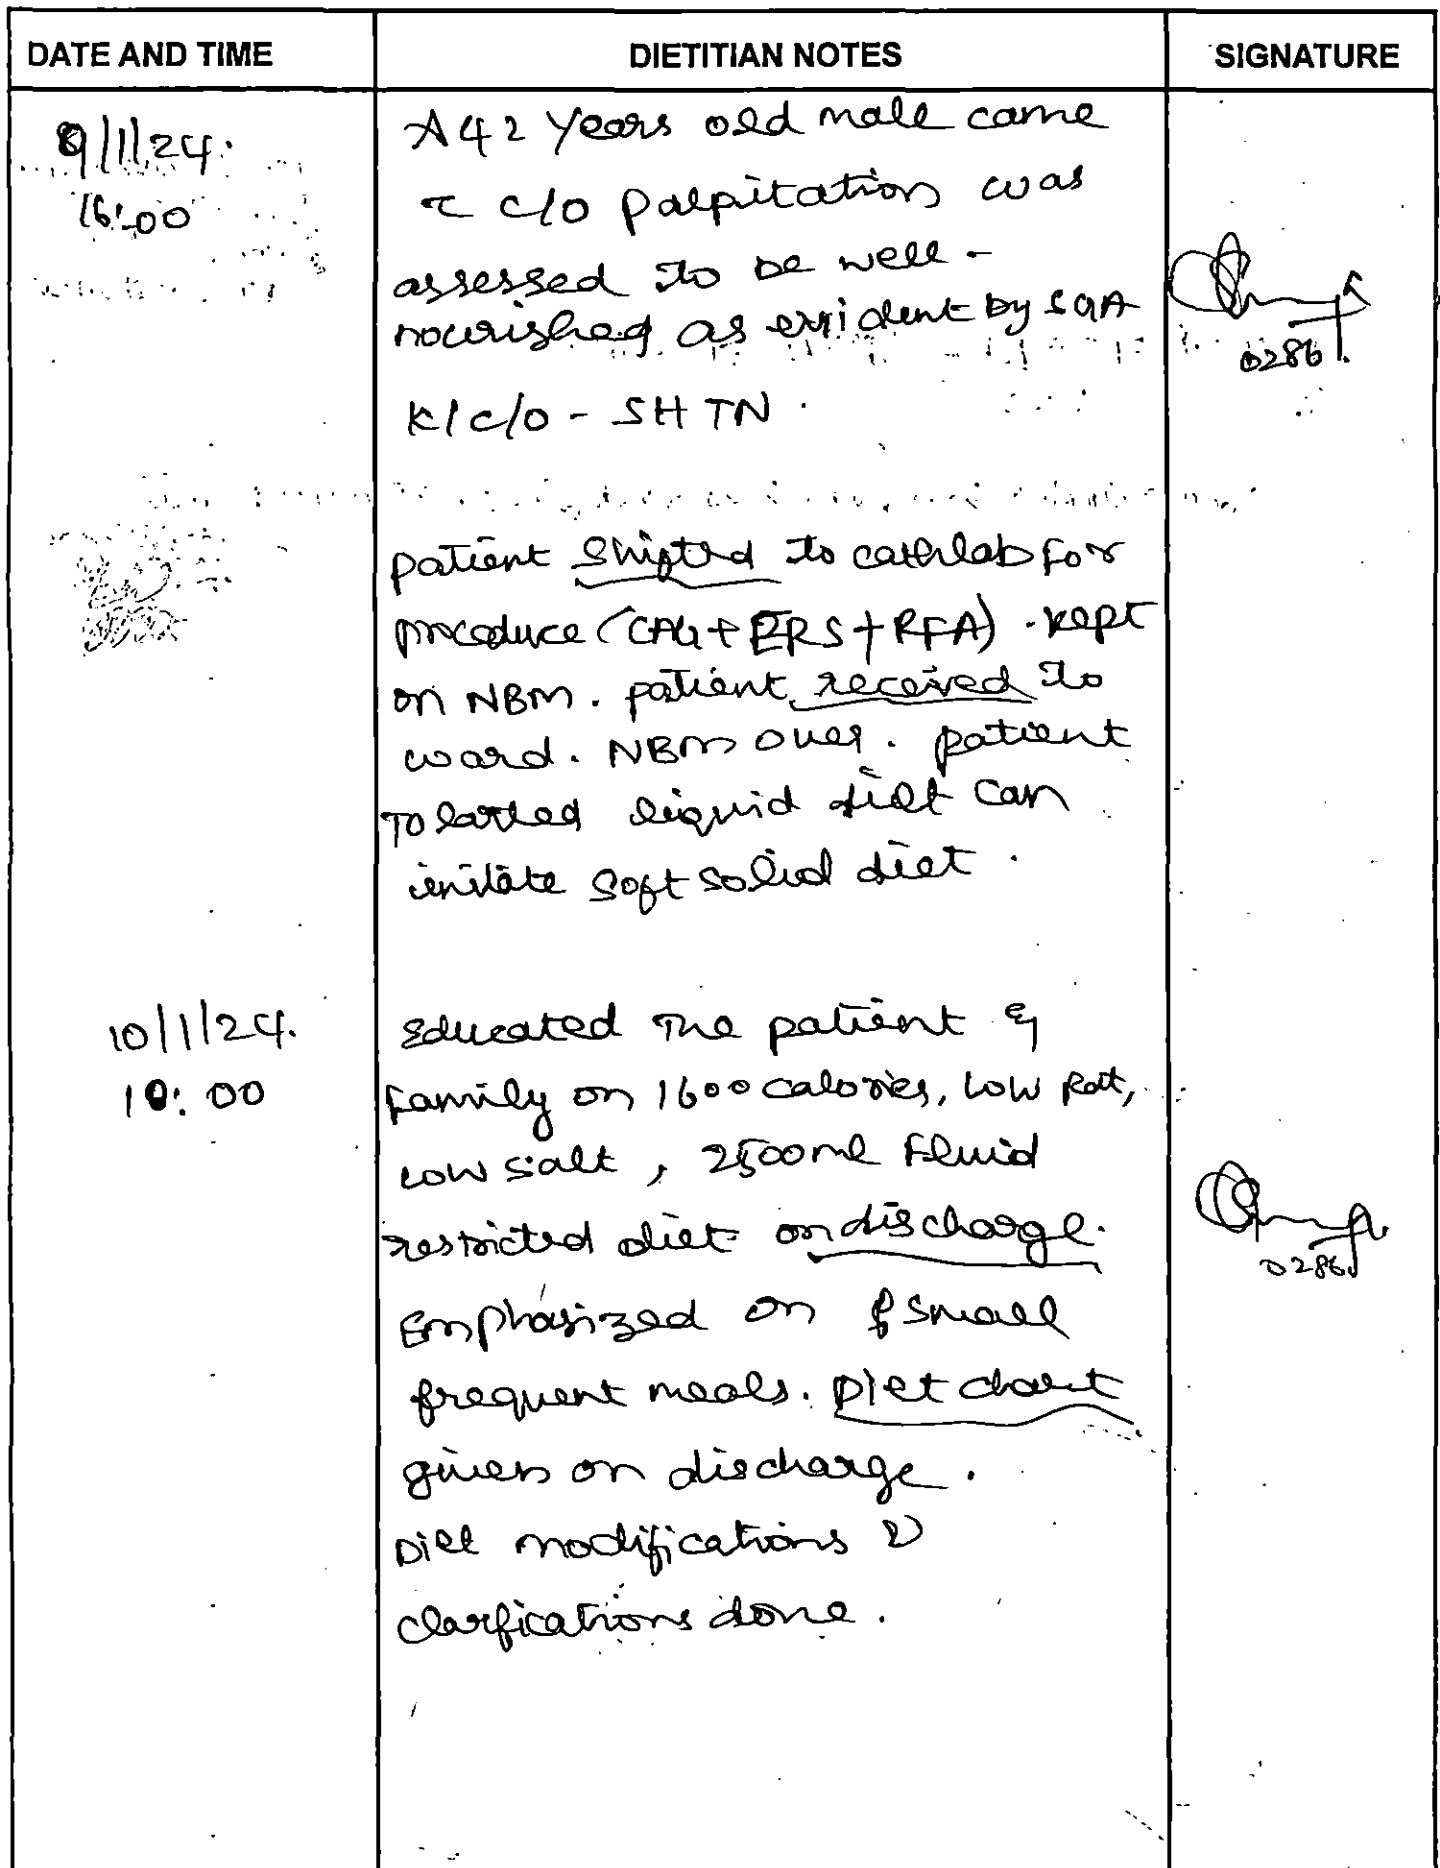 DATE AND TIME DIETITIAN NOTES SIGNATURE
9/1/24. A 42 Years old male came
16:00 c̄ c/o Palpitation was
assessed to be well -
nourished as evident by SGA
0286
K/c/o - SHTN .
patient shifted to cathlab for
procedure (CAG + EPS + RFA) . kept
on NBM . patient received to
ward . NBM over . patient
Tolarted liquid diet can
initate soft solid diet .
10/1/24. Educated The patient &
10:00 Family on 1600 calories, low fat,
low salt , 2500ml Fluid
restricted diet on discharge.
0286
Emphasized on small
frequent meals. Diet chart
given on discharge .
Diet modifications &
clarfications done .